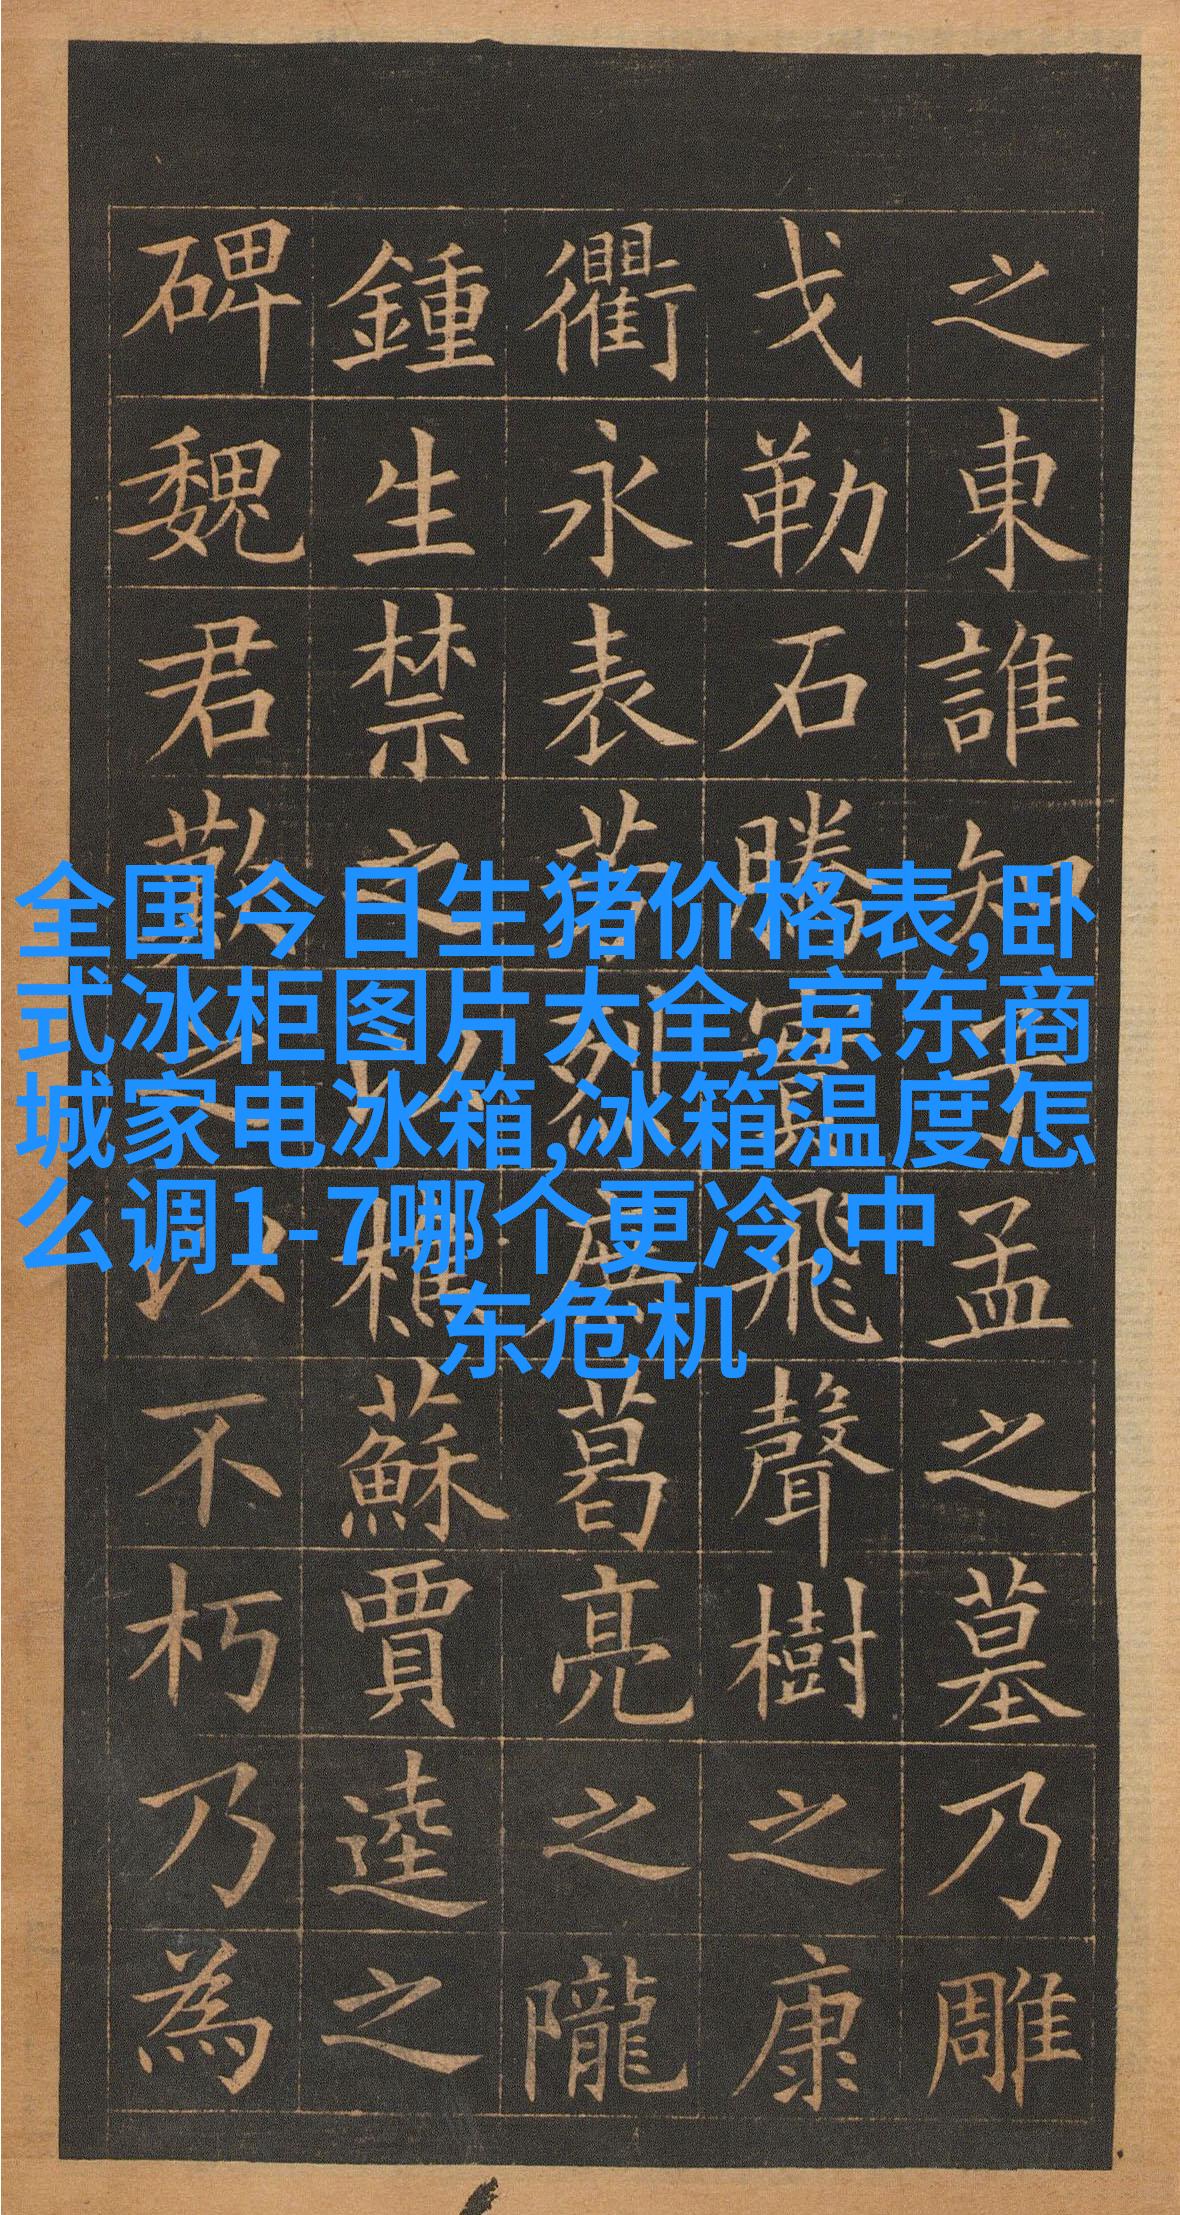 之東誰知子孟之墓乃雕
戈勒石騰實飛聲樹之康
衢永表芳烈庶葛亮之隴
鍾生禁之以樵蘇賈逵之
碑魏君歎之以不朽乃為
全国今日生猪价格表,卧
式冰柜图片大全,京东商
城家电冰箱,冰箱温度怎
么调1-7哪个更冷,中
东危机